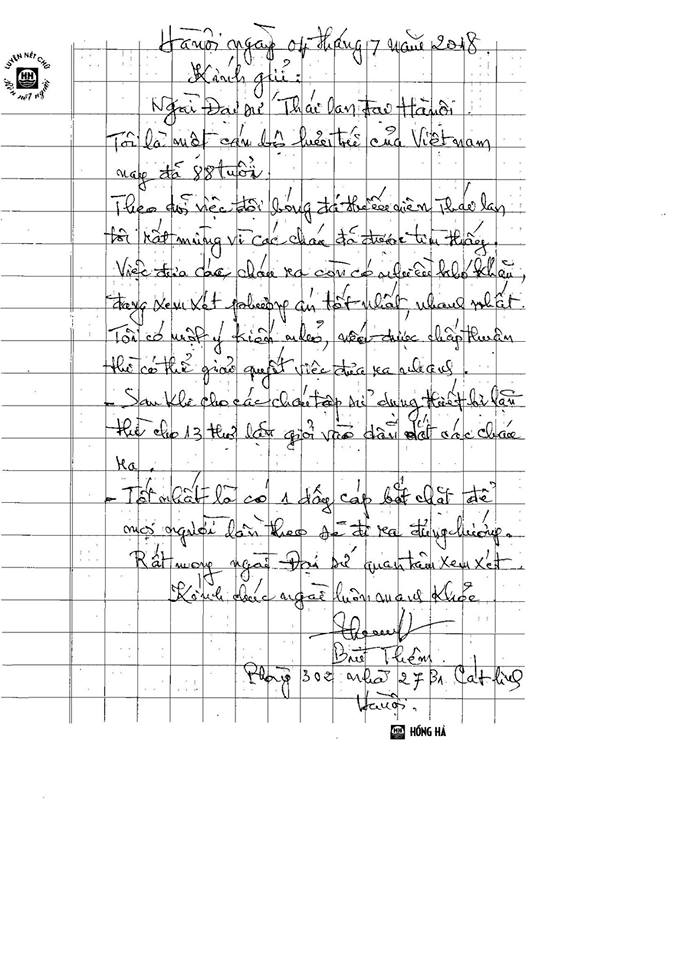 Hà nội ngày 04 tháng 7 năm 2018.
LUYỆN NẾT CHỮ
HH
RÈN NẾT NGƯỜI
Kính gửi:
Ngài Đại sứ Thái lan tại Hà nội.
Tôi là một cán bộ hưu trí của Việt nam
nay đã 88 tuổi.
Theo dõi việc đội bóng đá thiếu niên Thái lan
tôi rất mừng vì các cháu đã được tìm thấy.
Việc đưa các cháu ra còn có nhiều khó khăn,
đang xem xét phương án tốt nhất, nhanh nhất.
Tôi có một ý kiến nhỏ, nếu được chấp thuận
thì có thể giải quyết việc đưa ra nhanh.
- Sau khi cho các cháu tập sử dụng thiết bị lặn
thì cho 13 thợ lặn giỏi vào dẫn dắt các cháu
ra.
- Tốt nhất là có 1 dây cáp bắt chặt để
mọi người lần theo sẽ đi ra đúng hướng.
Rất mong ngài Đại sứ quan tâm xem xét.
Kính chúc ngài luôn mạnh khỏe
Thêm
Phòng 302 nhà 27 Cát linh
Hà nội.
HH HỒNG HÀ